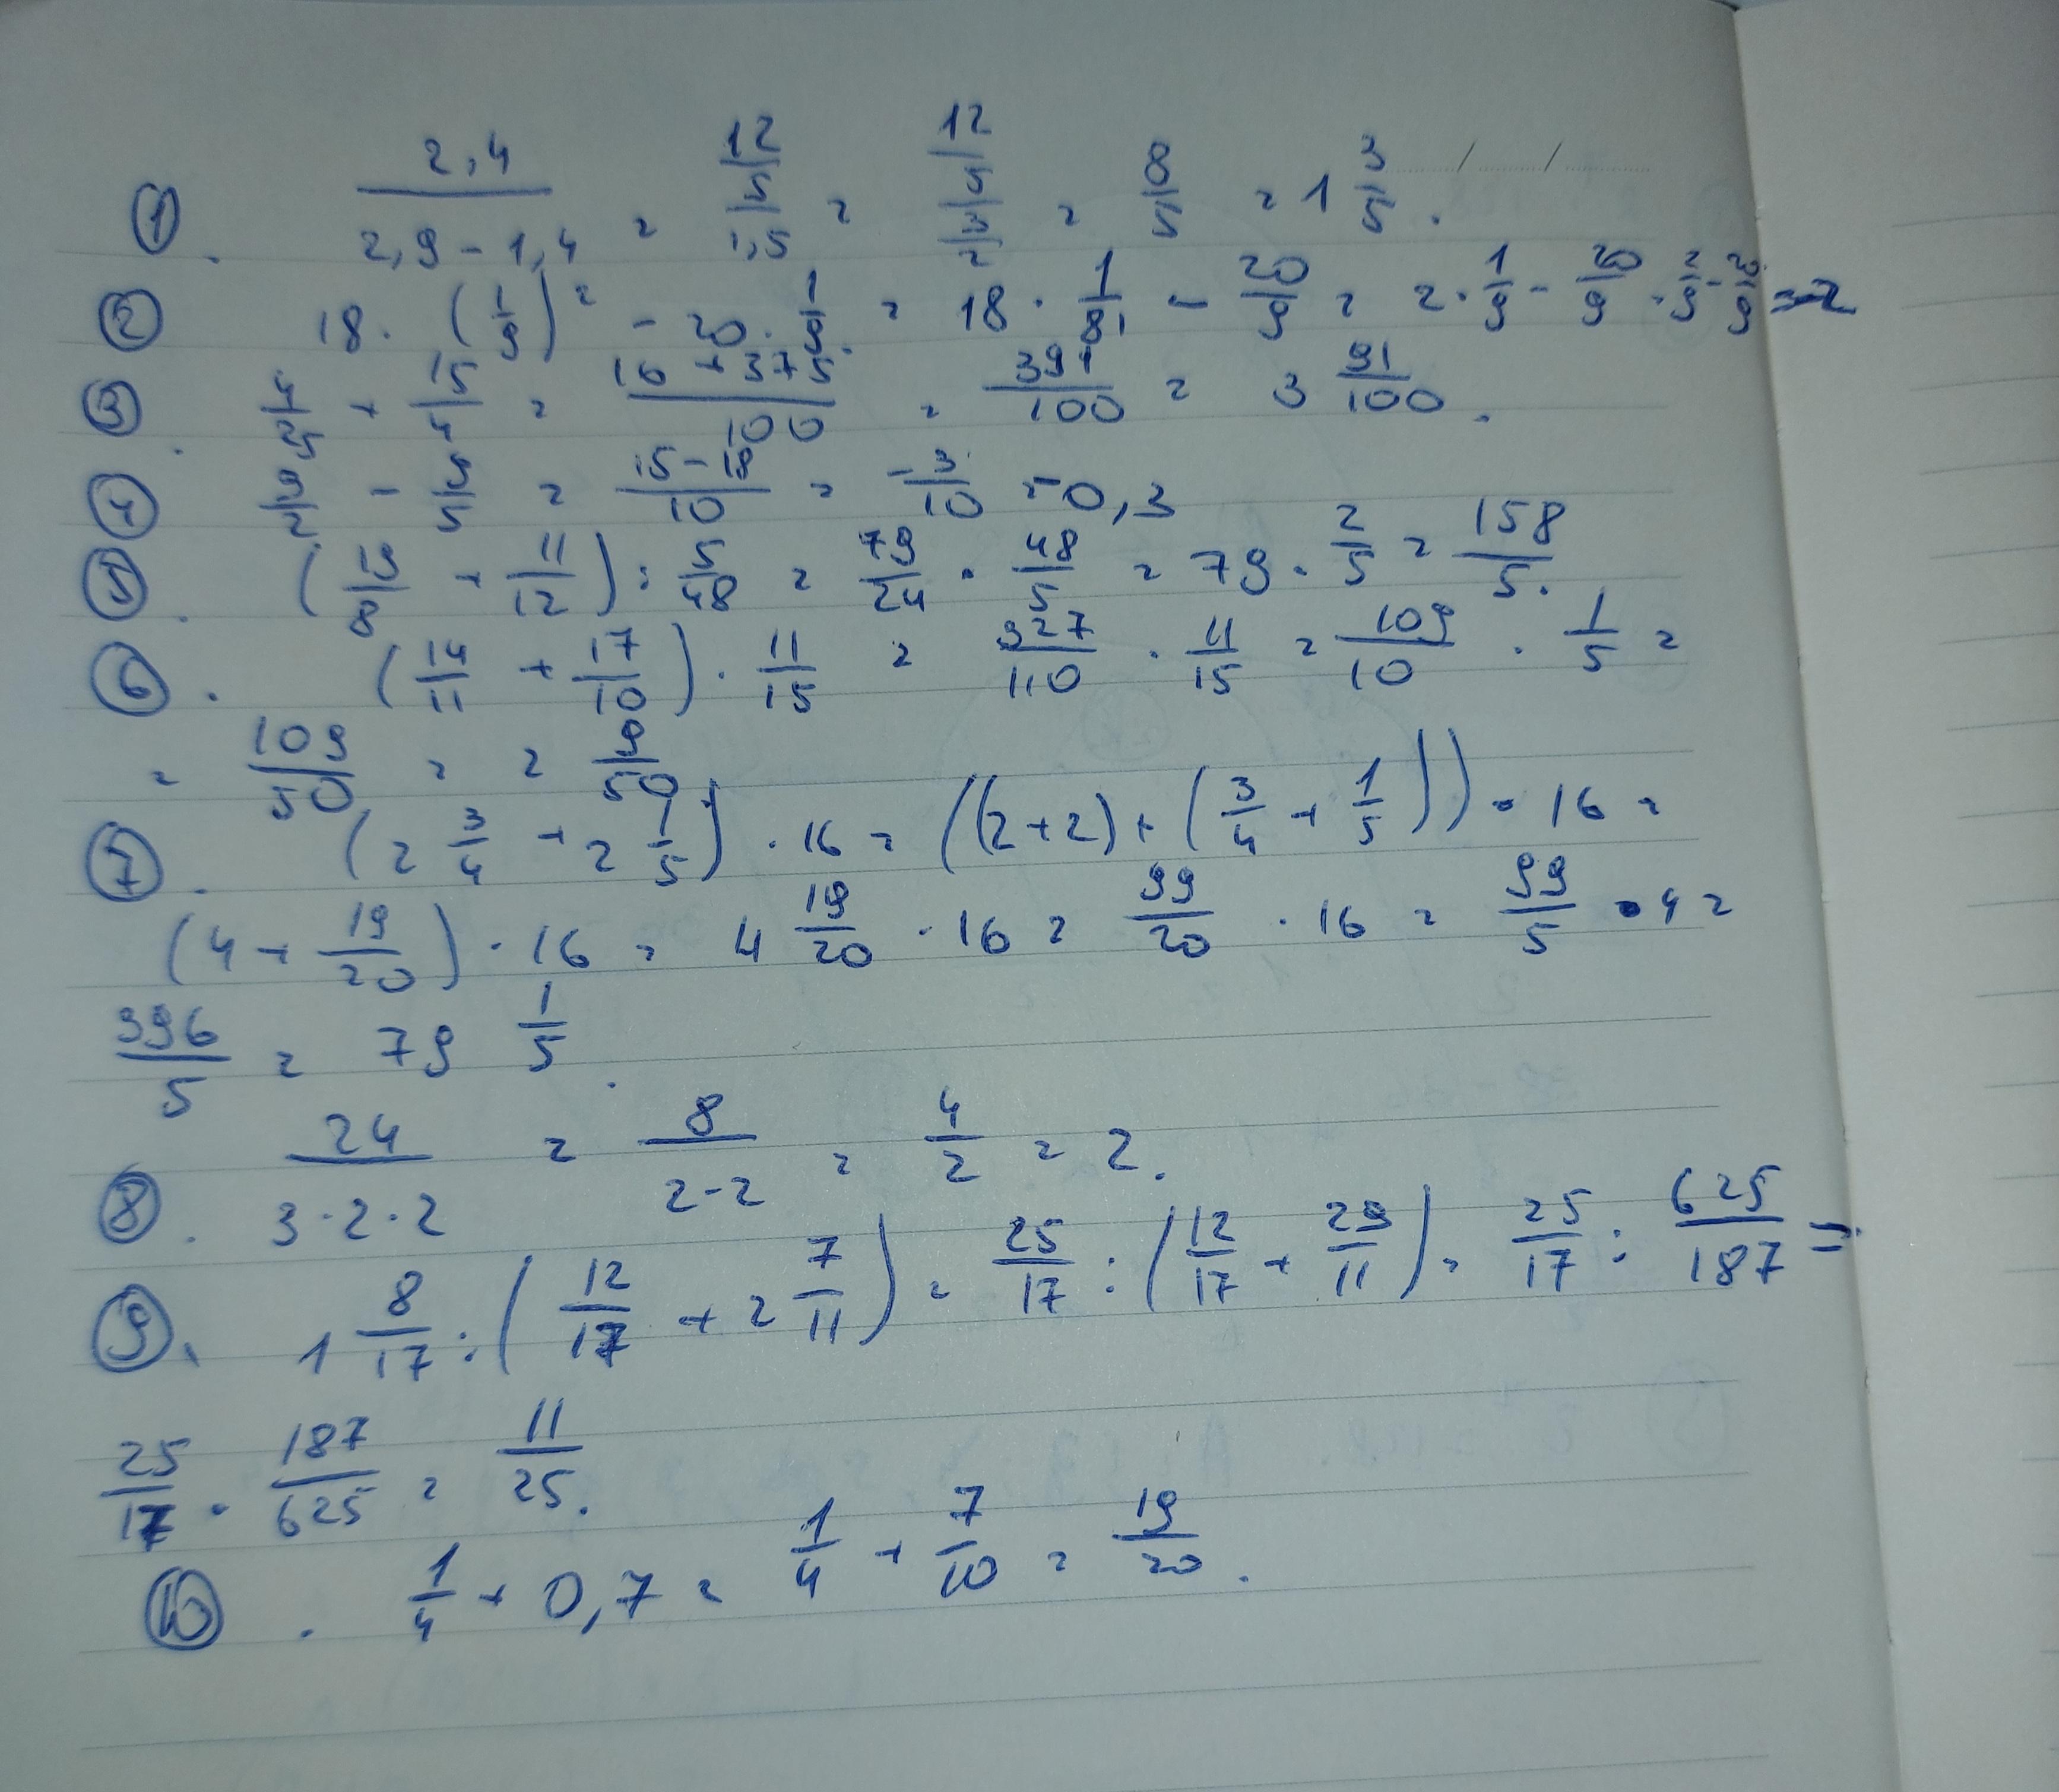 ① . 2,4 / (2,9 - 1,4) = (12/5) / 1,5 = (12/5) / (3/2) = 8/5 = 1 3/5 .
② 18 · (1/9)² - 20 · 1/9 = 18 · 1/81 - 20/9 = 2 · 1/9 - 20/9 = 2/9 - 20/9 = -2
③ . 4/25 + 15/4 = (16 + 375)/100 = 391/100 = 3 91/100 .
④ (15 - 18)/10 = -3/10 = -0,3
⑤ . (19/8 + 11/12) : 5/48 = 79/24 · 48/5 = 79 · 2/5 = 158/5 .
⑥ . (14/11 + 17/10) · 11/15 = 327/110 · 11/15 = 109/10 · 1/5 =
= 109/50 = 2 9/50
⑦ . (2 3/4 + 2 1/5) · 16 = ((2+2) + (3/4 + 1/5)) · 16 =
(4 + 19/20) · 16 = 4 19/20 · 16 = 99/20 · 16 = 99/5 · 4 =
396/5 = 79 1/5 .
⑧ . 24 / (3 · 2 · 2) = 8 / (2 · 2) = 4/2 = 2 .
⑨ . 1 8/17 : (12/17 + 2 7/11) = 25/17 : (12/17 + 29/11) = 25/17 : 625/187 =
25/17 · 187/625 = 11/25 .
⑩ . 1/4 + 0,7 = 1/4 + 7/10 = 19/20 .